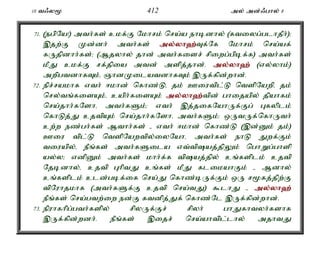 10 வஃலமூ 412 அல் அன்ஃபால் 8
71. (நபியே!) அவர்கள் உமக்கு மோசம் செய்ய நாடினால் (கவலைப்படாதீர்);
இதற்கு முன்னர் அவர்கள் அல்லாஹ்வுக்கே மோசம் செய்யக்
கருதினார்கள்; (ஆதலால் தான் அவர்களைச் சிறைப்பிடிக்க) அவர்கள்
மீது உமக்கு சக்தியை அவன் அளித்தான். அல்லாஹ் (எல்லாம்)
அறிபவனாகவும், ஞானமுடையவனாகவும் இருக்கின்றான்.
72. நிச்சயமாக எவர் ஈமான் கொண்டு, தம் ஊரைவிட்டு வெளியேறி, தம்
செல்வங்களையும், உயிர்களையும் அல்லாஹ்வின் பாதையில் தியாகம்
செய்தார்களோ, அவர்களும்; எவர் இத்தகையோருக்குப் புகலிடம்
கொடுத்து உதவியும் செய்தார்களோ, அவர்களும்; ஒருவருக்கொருவர்
உற்ற நண்பர்கள் ஆவார்கள் - எவர் ஈமான் கொண்டு (இன்னும் தம்)
ஊரை விட்டு வெளியேறவில்லையோ, அவர்கள் நாடு துறக்கும்
வரையில், நீங்கள் அவர்களுடைய எவ்விஷயத்திலும் பொறுப்பாளி
யல்ல; எனினும் அவர்கள் மார்க்க விஷயத்தில் உங்களிடம் உதவி
தேடினால், உதவி புரிவது உங்கள் மீது கடமையாகும் - ஆனால்
உங்களிடம் உடன்படிக்கை செய்து கொண்டிருக்கும் ஒரு சமூகத்திற்கு
விரோதமாக (அவர்களுக்கு உதவி செய்வது) கூடாது - அல்லாஹ்
நீங்கள் செய்பவற்றை நன்கு கவனித்துக் கொண்டே இருக்கின்றான்.
73. நிராகரிப்பவர்களில் சிலருக்குச் சிலர் பாதுகாவலர்களாக
இருக்கின்றனர். நீங்கள் இதைச் செய்யாவிட்டால் அதாவது